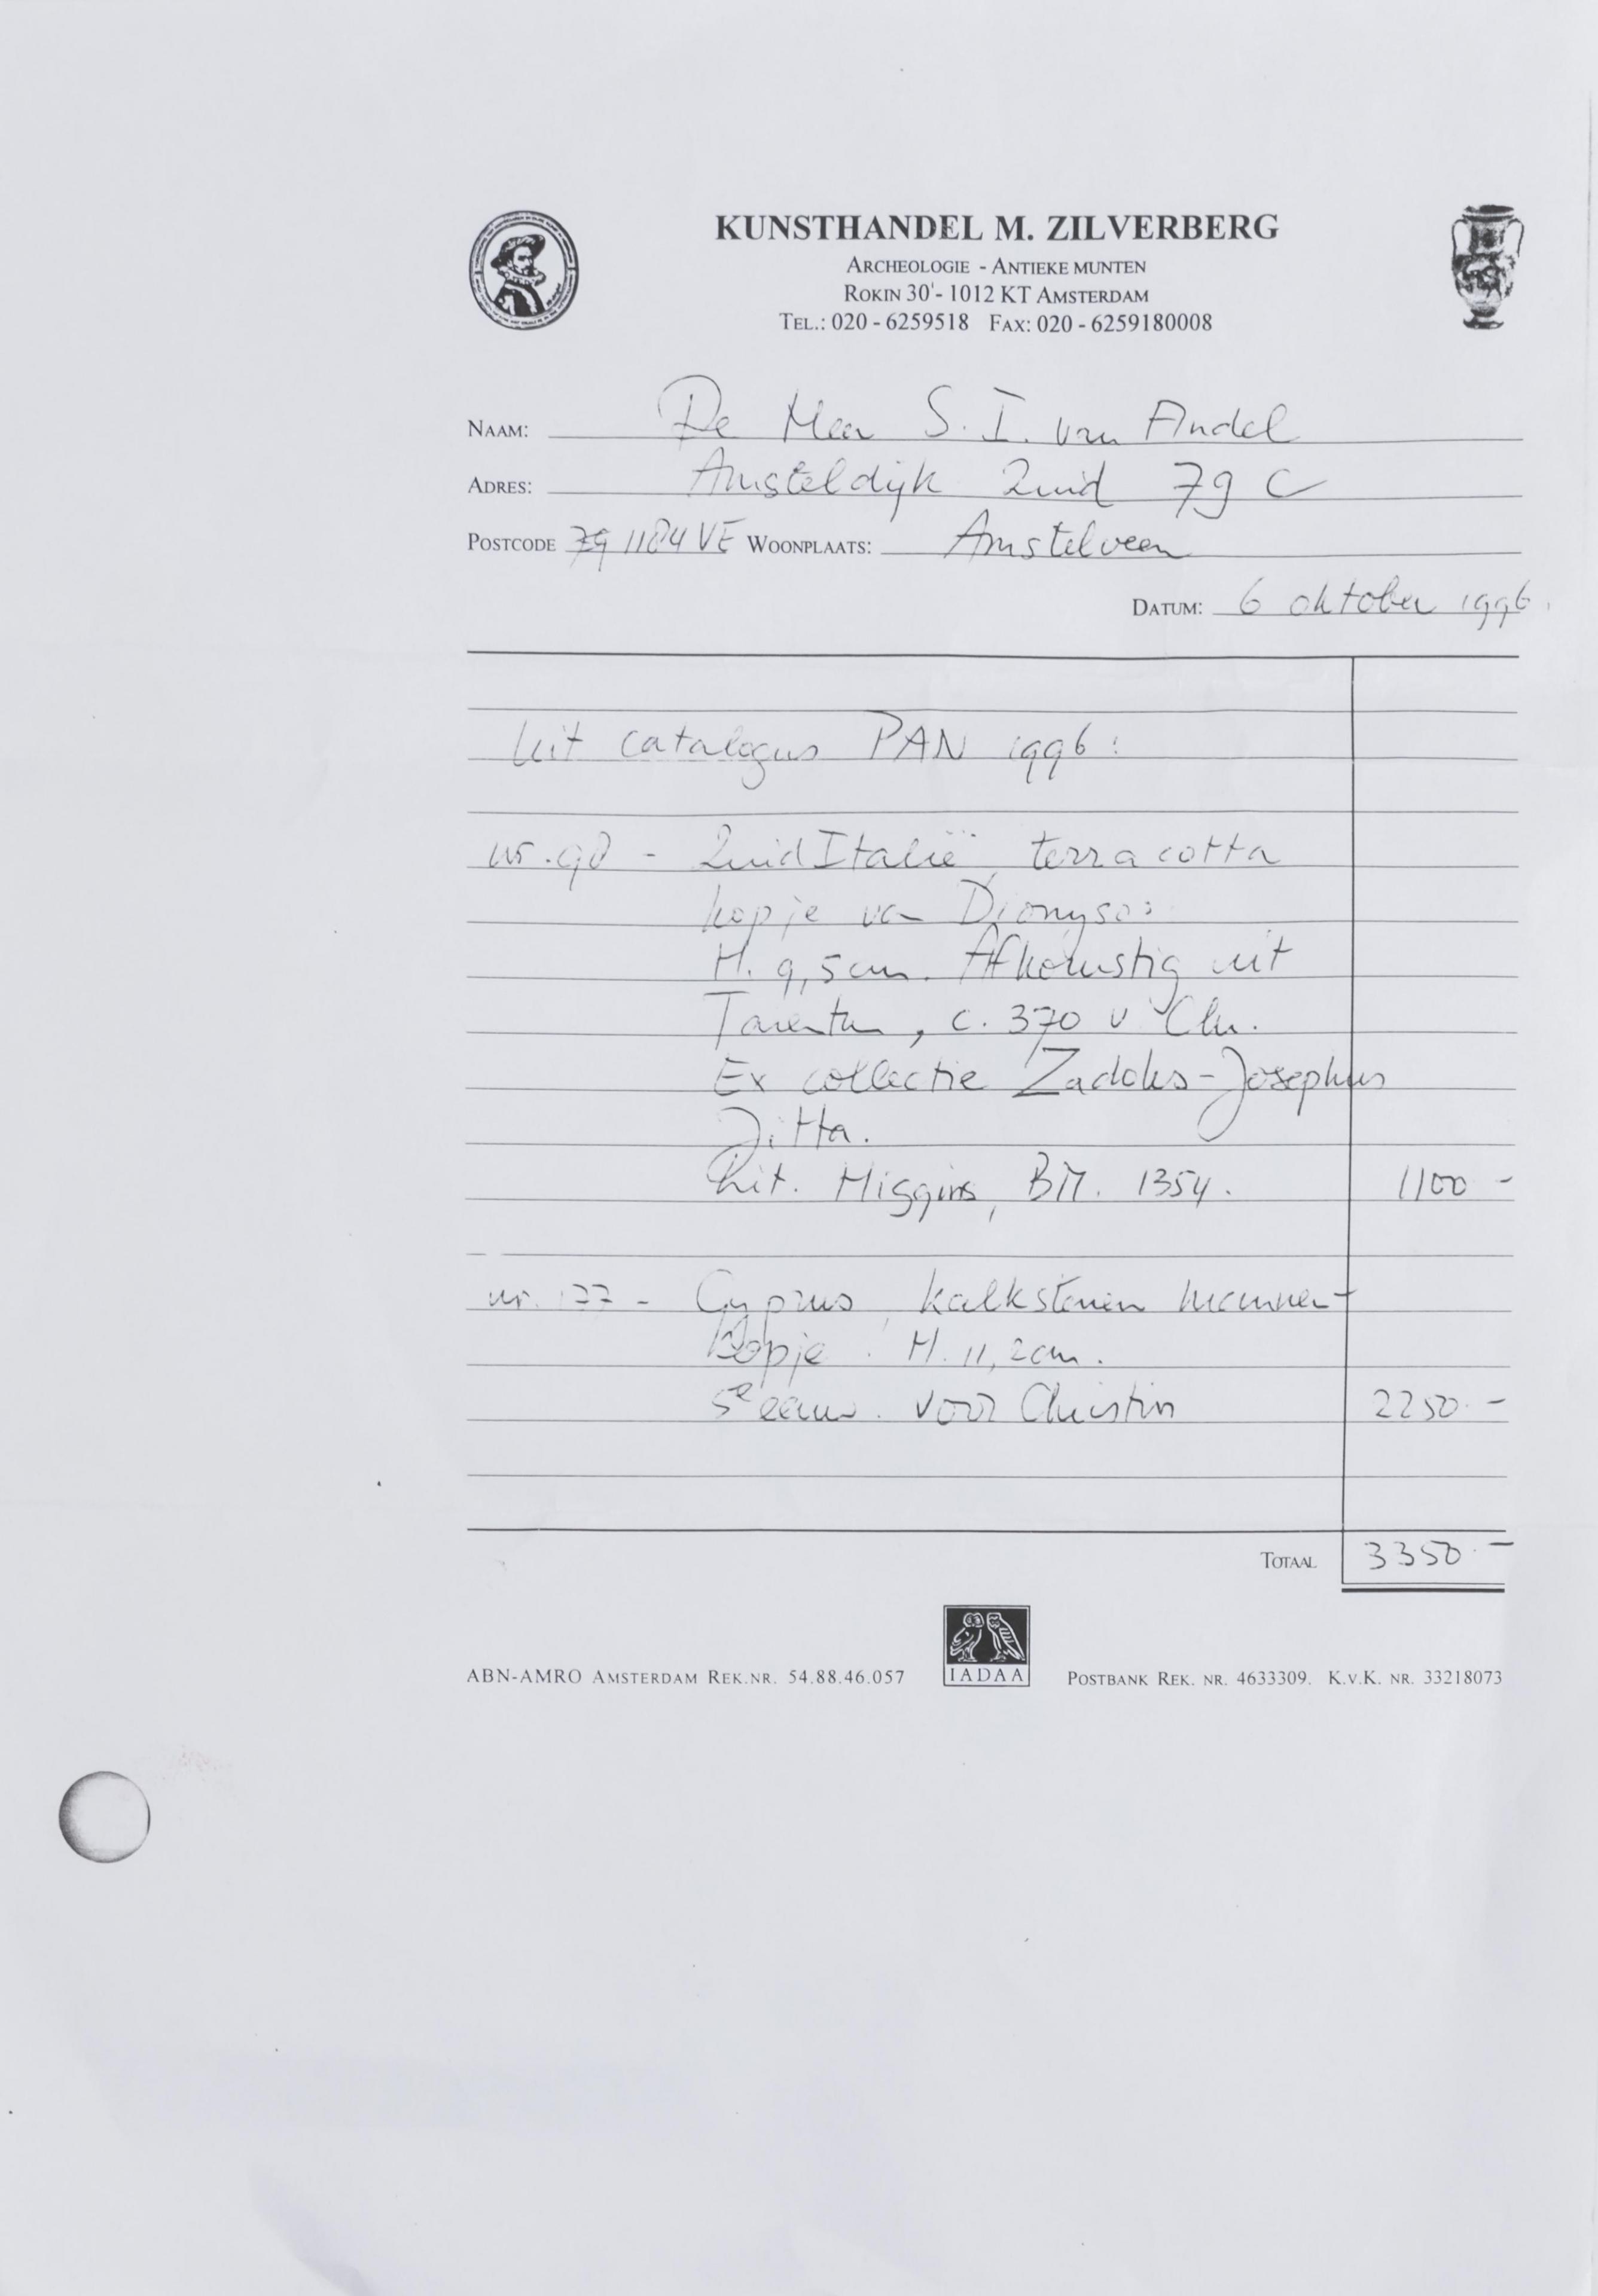 KUNSTHANDEL M. ZILVERBERG
ARCHEOLOGIE - ANTIEKE MUNTEN
ROKIN 30' - 1012 KT AMSTERDAM
TEL.: 020 - 6259518 FAX: 020 - 6259180008
NAAM: De Heer S. I. van Andel
ADRES: Amsteldijk Zuid 79 C
POSTCODE 79 1184 VE WOONPLAATS: Amstelveen
DATUM: 6 oktober 1996.
Uit catalogus PAN 1996:
nr. 98 - Zuid Italië, terracotta
kopje van Dionysos
H. 9,5 cm. Afkomstig uit
Tarentum, c. 370 v Chr.
Ex collectie Zadoks-Josephus
Jitta.
Lit. Higgins, BM. 1354. 1100 -
nr. 177 - Cyprus, kalkstenen mannen-
kopje. H. 11,2 cm.
5e eeuw. voor Christus 2250.-
TOTAAL 3350.-
IADAA
ABN-AMRO AMSTERDAM REK.NR. 54.88.46.057 POSTBANK REK. NR. 4633309. K.V.K. NR. 33218073